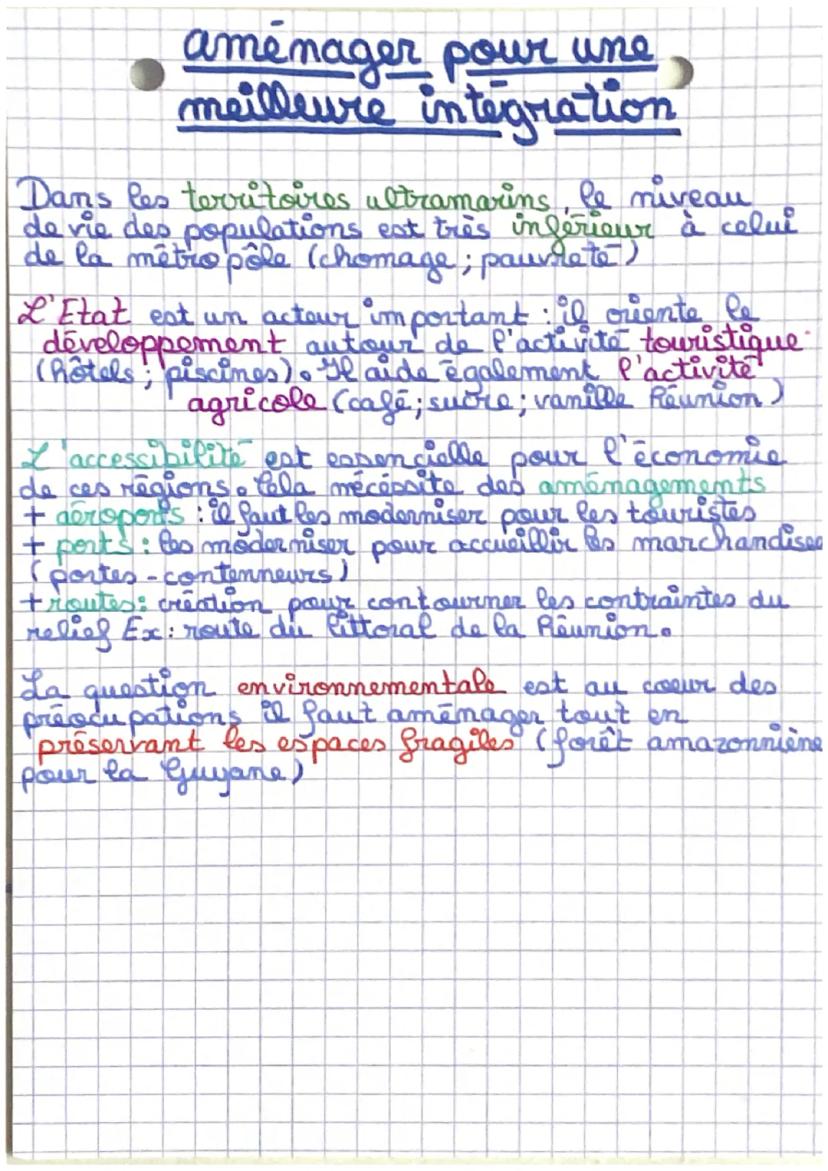 aménager pour une
meilleure intégration
Dans les territoires ultramarins, le niveau
de vie des populations est très inférieur à celui
de la métropôle (chomage ; pauvreté)
L'Etat est un acteur important : il oriente le
développement autour de l'activité touristique
(hôtels ; piscines). Il aide également l'activité
agricole (café ; sucre ; vanille Réunion)
L'accessibilité est essencielle pour l'économie
de ces régions. Cela nécéssite des aménagements
+ aéroports : il faut les moderniser pour les touristes
+ ports : les moderniser pour accueillir les marchandises
(portes - contenneurs)
+ routes : création pour contourner les contraintes du
relief Ex : route du littoral de la Réunion.
La question environnementale est au coeur des
préocupations il faut aménager tout en
préservant les espaces fragiles (forêt amazonnième
pour la Guyane)